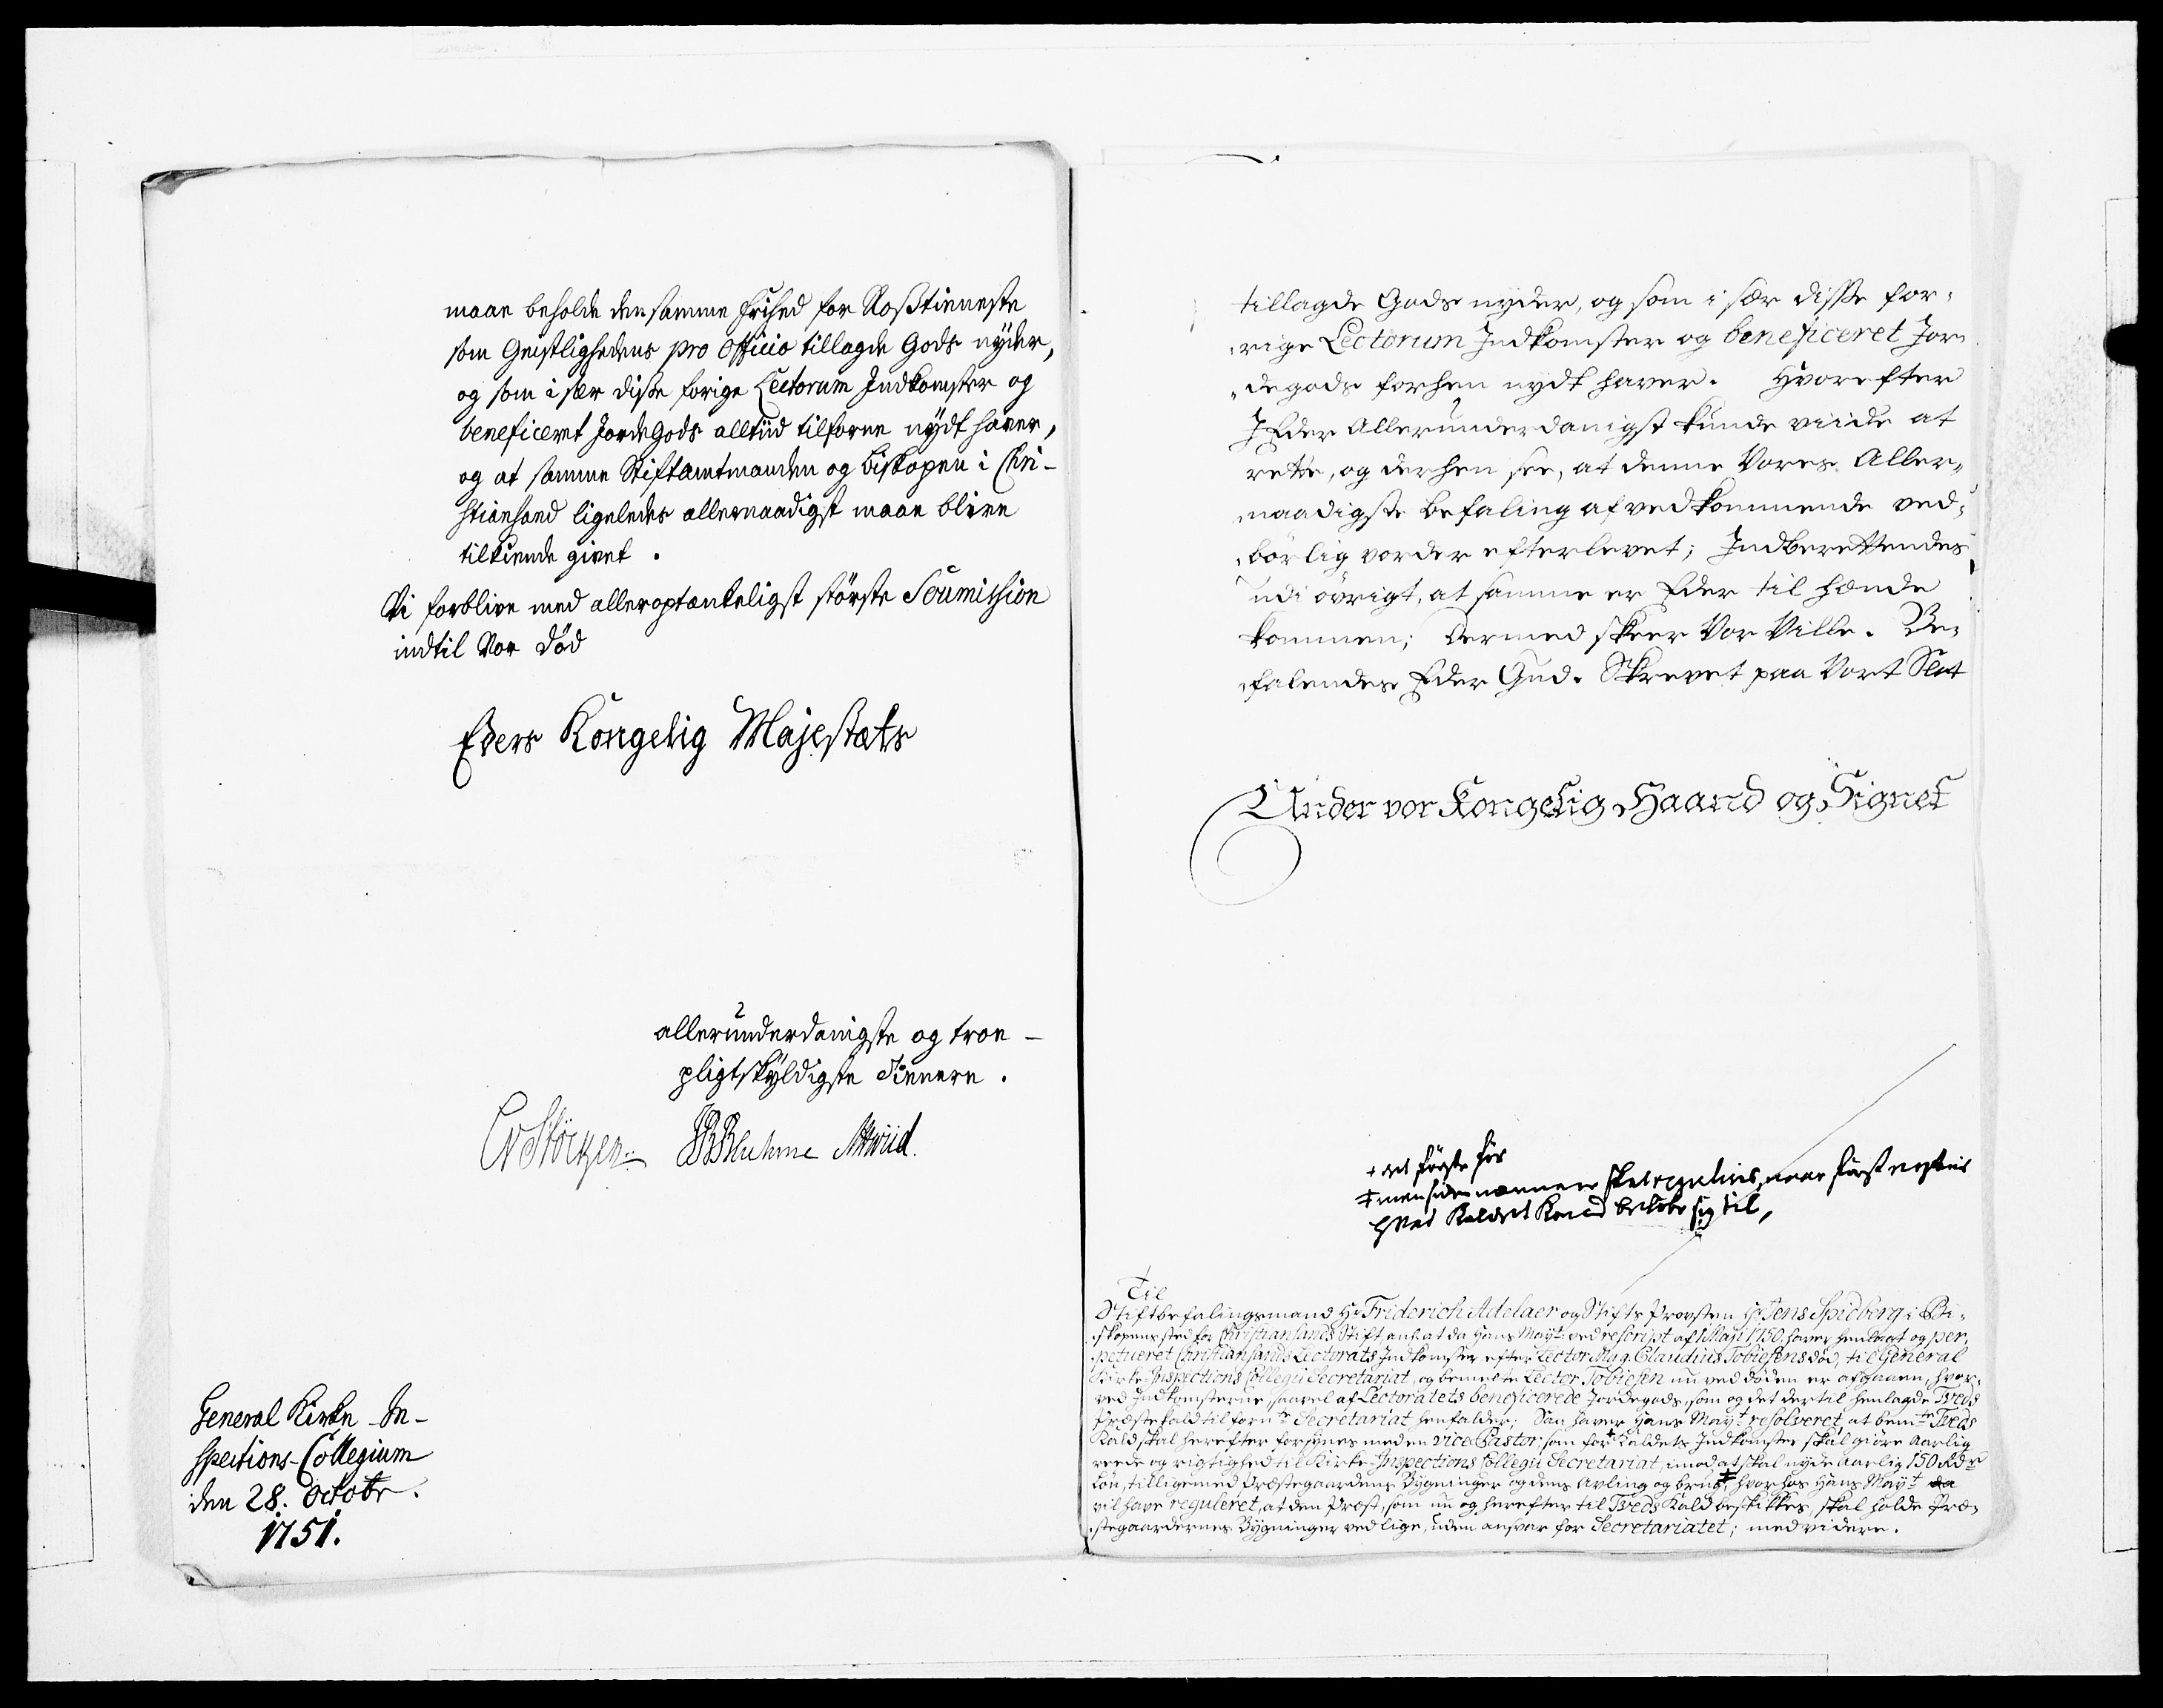 maae beholde den samme Frihed for Roßtieneste
som Geistlighedens pro Officio tillagde Gods nyder,
og som i sær disse forige Lectorum Indkomster og
beneficeret JordeGods alltiid tilforne nydt haver,
og at samme Stiftamtmanden og Biskopen i Chri-
stiansand ligeledes allernaadigst maae blive
tilkiende givet.
Vi forblive med alleroptænkeligst største Soumission
indtil Vor Død
Eders Kongelig Majestæts
allerunderdanigste og troe-
pligtskyldigste Tienere.
JBBluhme
General Kirke-In-
spections-Collegium
den 28. Octobr.
1751.
tillagde Gods nyder, og som i sær disse for-
rige Lectorum Indkomster og beneficeret Jor-
degods forhen nydt haver. Hvorefter
I Eder Allerunderdanigst kunde viide at
rette, og derhen see, at denne Vores Aller-
naadigste Befaling af vedkommende ved-
børlig vorder efterlevet; Indberettendes
udi øvrigt, at samme er Eder til hænde
kommen; Dermed skeer Vor Ville. Be-
falendes Eder Gud. Skrevet paa Vort Slot
Under vor Kongelig Haand og Signet
+ det første
‡ men siden skal reguleris, naar først
hvad Kaldet Kand beløbe sig til,
Til
Stiftbefalingsmand Hr Friderich Adelaer og Stifts Provsten Hr Jens Spidberg i Bi-
skopens sted for Christiansands Stift, anl. at da Hans Mayt ved rescript af 1 Maji 1750, haver henlagt og per-
petueret Christiansands Lectorats Indkomster efter Lector Mag. Claudius Tobiesens død, til General
Kirke-Inspections Collegii Secretariat, og bemelte Lector Tobiesen nu ved døden er afgaaen, hvor-
ved Indkomsterne, saavel af Lectoratets beneficerede Jordegods, som og det dertil henlagde Tveds
Præstekald til forn.te Secretariat henfalder; Saa haver Hans Mayt resolveret, at bem.te Tveds
Kald skal herefter forsynes med en vice Pastor, som for + Kaldets Indkomster skal giøre Aarlig
reede og rigtighed til Kirke-Inspections Collegii Secretariat, imod at skal nyde Aarlig 150 Rdr
Løn, tilligemed Præstegaardens Bygninger og dens Avling og brug ‡, hvorhos Hans Mayt da
vil have reguleret, at den Præst, som nu og herefter til Tveds Kald beskikkes, skal holde Præ-
stegaardernes Bygninger vedlige, uden ansvar for Secretariatet; med videre.